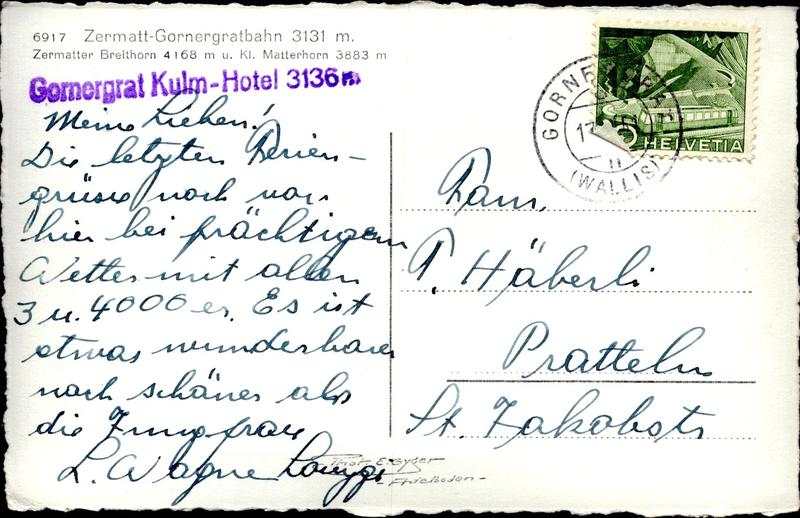 6917 Zermatt-Gornergratbahn 3131 m.
Zermatter Breithorn 4168 m u. Kl. Matterhorn 3883 m
Gornergrat Kulm-Hotel 3136 m
Meine Lieben!
Die letzten Ferien-
grüsse noch von
hier bei prächtigem
Wetter mit allen
3 u. 4000 er. Es ist
etwas wunderbares
noch schöner als
die Jungfrau
L. Wagner
GORNERGRAT
17.
(WALLIS)
5
HELVETIA
Fam.
P. Häberli
Pratteln
St. Jakobstr
Phot. E. Gyger
- Adelboden -